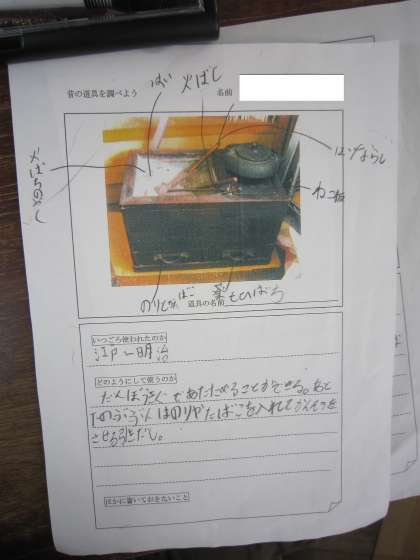 昔の道具を調べよう
名前
はい
火ばし
はいならし
ねこ板
道具の名前
もひばち
いつごろ使われたのか
江戸〜明治
どのようにして使うのか
だんぼうきぐであたためることができる。あと
はのりやたばこを入れてかんそうを
させる
ほかに書いておきたいこと